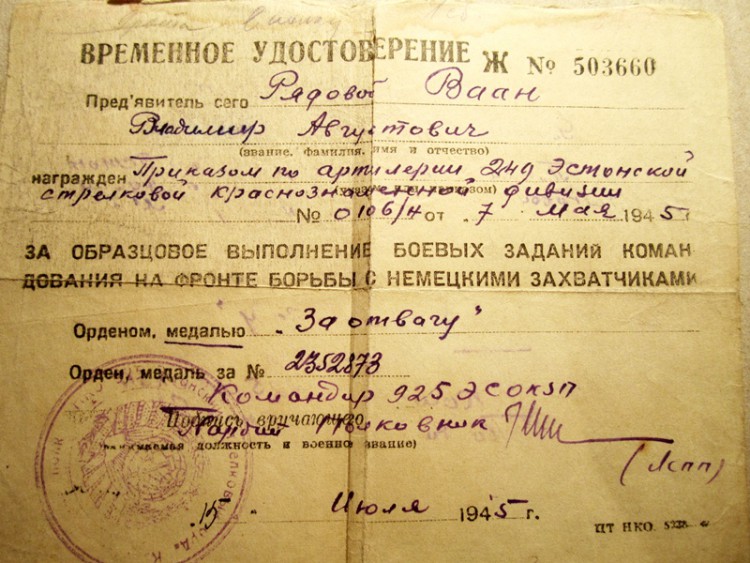 ВРЕМЕННОЕ УДОСТОВЕРЕНИЕ Ж № 503660
Пред'явитель сего Рядовой Ваан
Владимир Августович
(звание, Фамилия, имя и отчество)
награжден Приказом по артилерии 249 Эстонской
стрелковой краснознаменной дивизии
№ 0106/н от 7 Мая 1945 г
ЗА ОБРАЗЦОВОЕ ВЫПОЛНЕНИЕ БОЕВЫХ ЗАДАНИЙ КОМАН
ДОВАНИЯ НА ФРОНТЕ БОРЬБЫ С НЕМЕЦКИМИ ЗАХВАТЧИКАМИ
Орденом, медалью „За отвагу"
Орден, медаль за № 2352873
Командир 925 ЭСОКЗП
Подпись вручающего
Подполковник
(занимаемая должность и военное звание)
15 " Июля 1945 г.
ЦТ НКО.